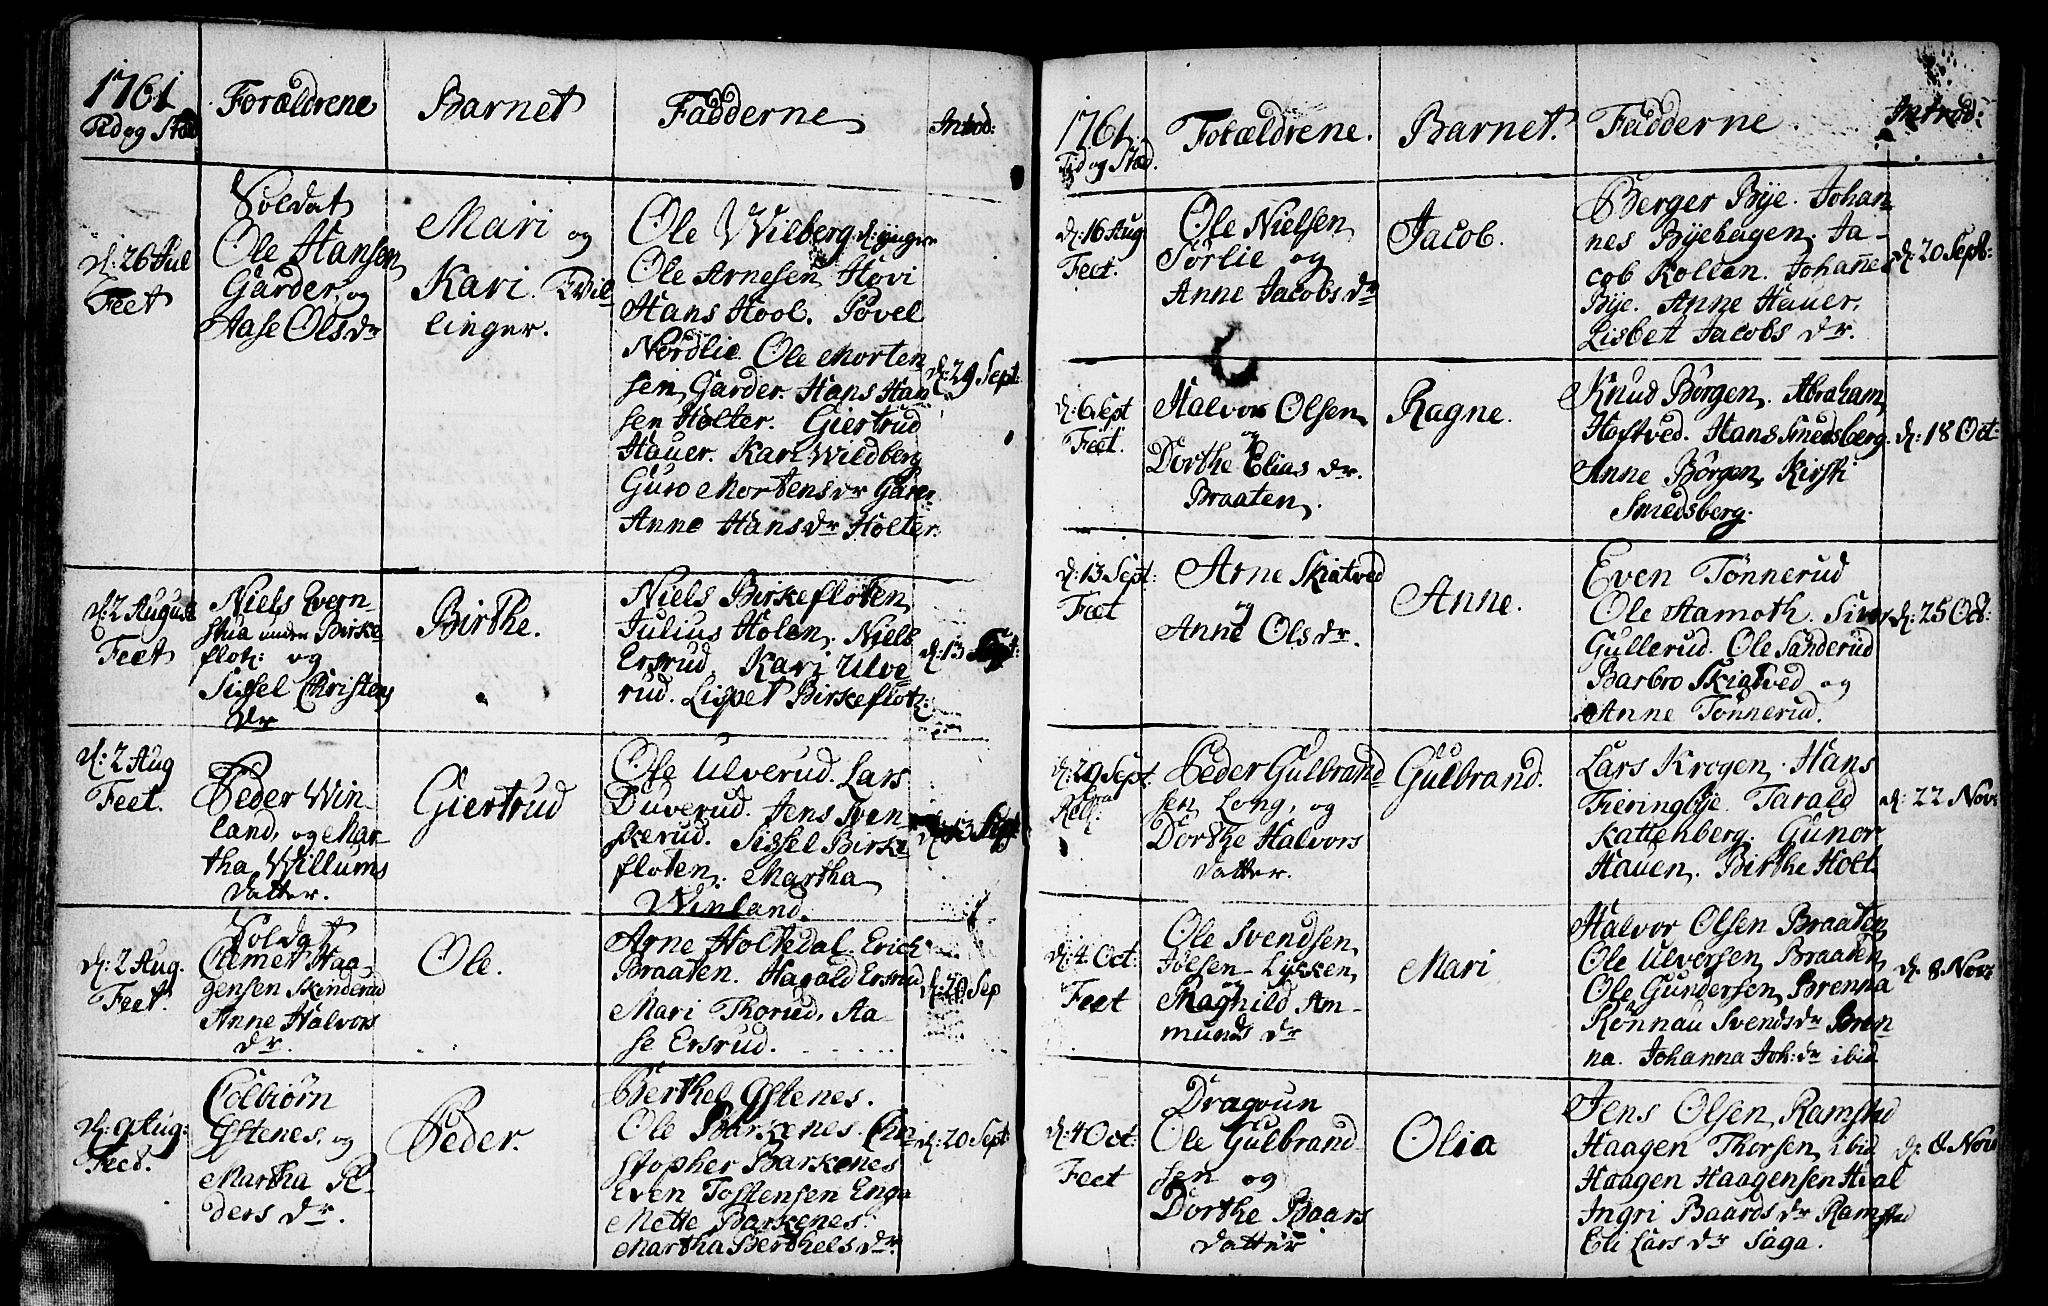 1761
Tid og Stæd
Forældrene
Barnet
Fadderne
Introd:
d: 26 Jul
Feet
Soldat
Ole Hansen
Garder, og
Aase Olsdr
Mari og
Kari. Tvil-
linger.
Ole Wilberg d: yngre
Ole Arnesen Hovi
Hans Hool. Povel
Nordlie. Ole Morten
sen Garder. Hans Han
sen Holter. Giertrud
Hauer. Kari Wildberg
Guro Mortensdr Garer
Anne Hansdr Holter.
d: 29 Sept
d: 2 August
Feet
Niels Evern-
stua under Birke
flot: og
Sissel Christens
dr
Birthe.
Niels Birkefloten
Julius Holen. Niels
Ersrud. Kari Ulve
rud. Lisbet Birkeflot:
d: 13 Sept:
d: 2 Aug
Feet.
Peder Win-
land, og Mar-
tha Willums
datter.
Giertrud
Ole Ulverud. Lars
Duverud. Jens Sven
skerud. Sissel Birke-
floten. Martha
Winland.
d: 13 Sept
d: 2 Aug.
Feet.
Soldat
Clemet Haa-
gensen Skinderud
Anne Halvors
dr.
Ole.
Arne Holtedal. Erich
Braaten. Harald Ersrud
Mari Thorud, Aa-
se Ersrud.
d: 20 Sep
d: 9 Aug:
Feet.
Colbiørn
Østenes, og
Martha Pe-
ders dr.
Peder.
Berthel Østenes.
Ole Barkenes. Chri-
stopher Barkenes
Even Tostensen Enga
Mette Barkenes.
Martha Berthels dr.
d: 20 Sept
1761.
Tid og Stæd.
Forældrene.
Barnet.
Fadderne
Introd:
d: 16 Aug
Feet.
Ole Nielsen
Sørlie og
Anne Jacobs dr
Jacob.
Berger Bye. Johan-
nes Byehagen. Ja-
cob Kollen. Johannes
Bye. Anne Hauer.
Lisbet Jacobs dr.
d: 20 Sept:
d: 6 Sept
Feet.
Halvor Olsen
og
Dorthe Elias dr.
Braaten.
Ragne.
Knud Børgen. Abraham
Hoftved. Hans Smedsberg.
Anne Børgen. Kirsti
Smedsberg.
d: 18 Oct:
d: 13 Sept:
Feet
Arne Skiatved
og
Anne Olsdr.
Anne.
Even Tønnerud
Ole Stamoth. Siver
Gullerud. Ole Sanderud
Barbro Skiatved og
Anne Tønnerud.
d: 25 Oct:
d: 29 Sept.
Peder Gulbrand
sen Long, og
Dorthe Halvors
datter.
Gulbrand.
Lars Krogen. Hans
Fieringbye. Tarald
Kattenberg. Gunor
Hauen. Birthe Holt
d: 22 Nov:
d: 4 Oct:
Feet
Ole Svendsen
Lykken,
og
Ragnild Am-
munds dr
Mari
Halvor Olsen Braaten
Ole Ulversen Braaten
Ole Gundersen Brenna
Rønnau Svendsdr Bren
na. Johanna Joh: dr ibid
d: 8 Nov:
d: 4 Oct:
Feet
Dragoun
Ole Gulbrand
sen og
Dorthe Baars
datter
Olia
Jens Olsen Ramstad
Haagen Thorsen ibid
Haagen Haagensen Hval
Ingri Baards dr Ramsted
Eli Lars dr Saga.
d: 8 Nov